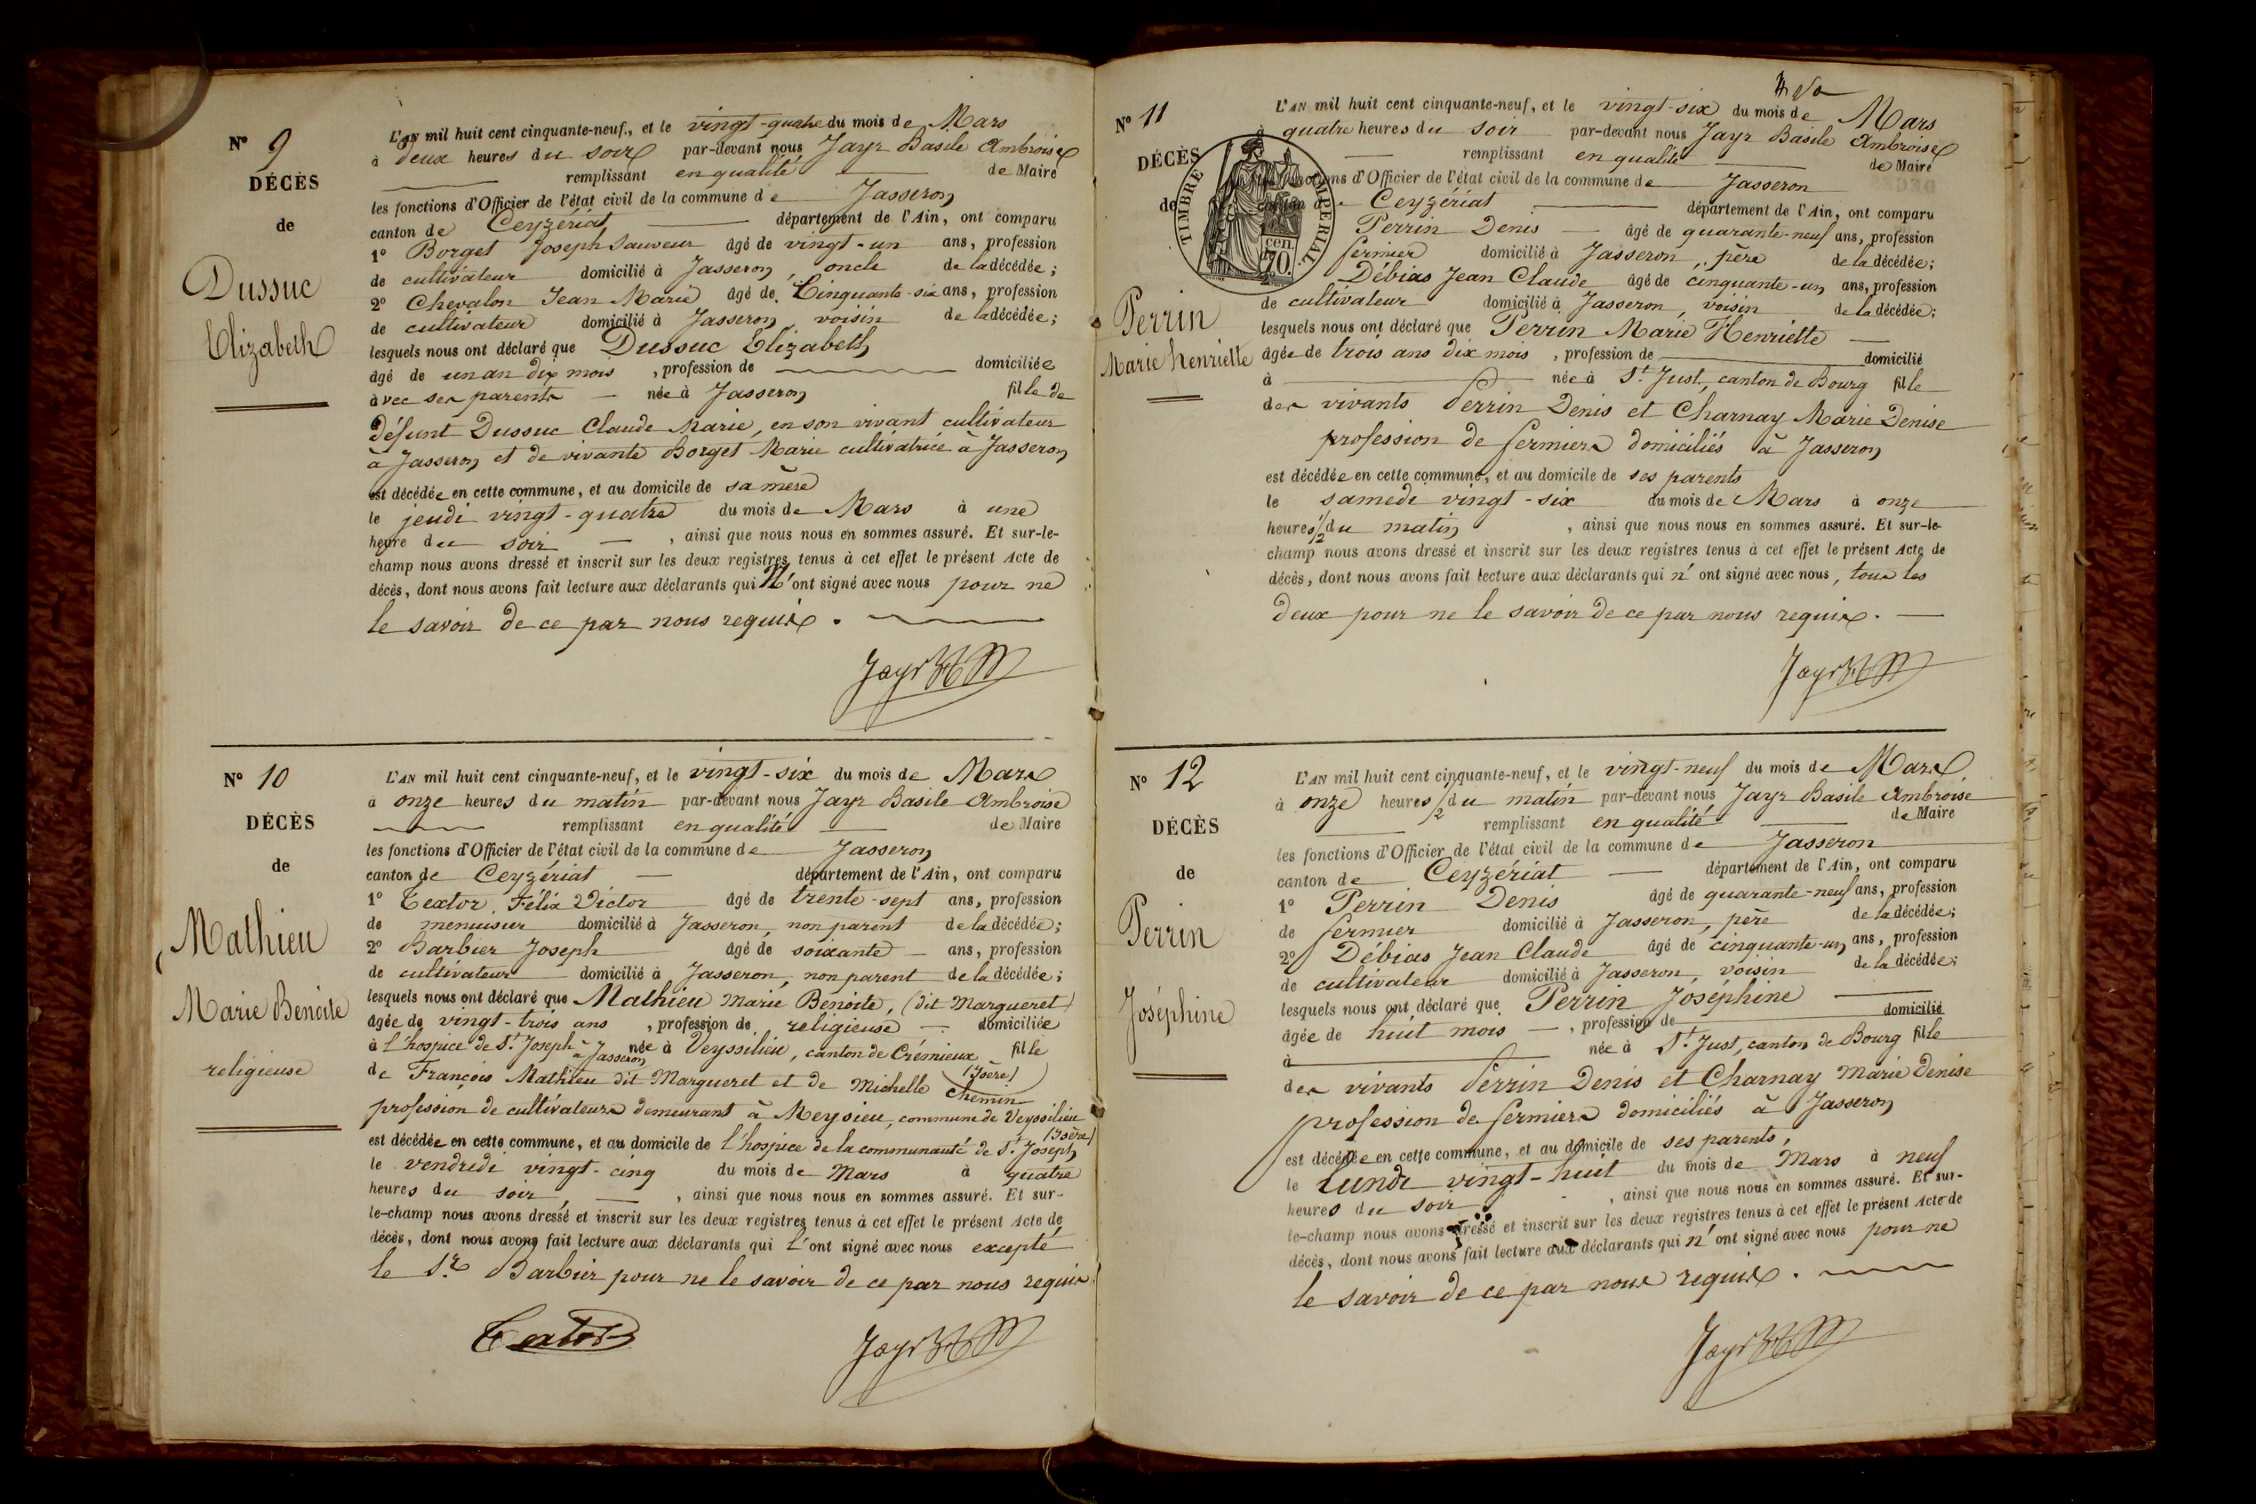 N° 9
DÉCÈS
de
Dussuc
Elizabeth
L'AN mil huit cent cinquante-neuf, et le vingt-quatre du mois de Mars
à deux heures du soir par-devant nous Jayr Basile Ambroise
remplissant en qualité de Maire
les fonctions d'Officier de l'état civil de la commune de Jasseron
canton de Ceyzériat département de l'Ain, ont comparu
1° Borget Joseph Sauveur âgé de vingt-un ans, profession
de cultivateur domicilié à Jasseron, oncle de la décédée;
2° Chevalon Jean Marie âgé de Cinquante-six ans, profession
de cultivateur domicilié à Jasseron, voisin de la décédée;
lesquels nous ont déclaré que Dussuc Elizabeth
âgé de un an dix mois, profession de domiciliée
avec ses parents née à Jasseron fille de
défunt Dussuc Claude Marie, en son vivant cultivateur
à Jasseron et de vivante Borget Marie cultivatrice à Jasseron
est décédée en cette commune, et au domicile de sa mère
le jeudi vingt-quatre du mois de Mars à une
heure du soir, ainsi que nous nous en sommes assuré. Et sur-le-
champ nous avons dressé et inscrit sur les deux registres tenus à cet effet le présent Acte de
décès, dont nous avons fait lecture aux déclarants qui N'ont signé avec nous pour ne
le savoir de ce par nous requis.
Jayr
N° 10
DÉCÈS
de
Mathieu
Marie Benoite
religieuse
L'AN mil huit cent cinquante-neuf, et le vingt-six du mois de Mars
à onze heures du matin par-devant nous Jayr Basile Ambroise
remplissant en qualité de Maire
les fonctions d'Officier de l'état civil de la commune de Jasseron
canton de Ceyzériat département de l'Ain, ont comparu
1° Textor Félix Victor âgé de trente-sept ans, profession
de menuisier domicilié à Jasseron, non parent de la décédée;
2° Barbier Joseph âgé de soixante ans, profession
de cultivateur domicilié à Jasseron, non parent de la décédée;
lesquels nous ont déclaré que Mathieu Marie Benoite, (dit Margueret)
âgée de vingt-trois ans, profession de religieuse domiciliée
à l'hospice de St Joseph à Jasseron née à Veyssilieu, canton de Crémieux (Isère) fille
de François Mathieu dit Margueret et de Michelle Chemin
profession de cultivateurs demeurant à Meysieu, commune de Veyssilieu (Isère)
est décédée en cette commune, et au domicile de l'hospice de la communauté de St Joseph
le vendredi vingt-cinq du mois de Mars à quatre
heures du soir, ainsi que nous nous en sommes assuré. Et sur-
le-champ nous avons dressé et inscrit sur les deux registres tenus à cet effet le présent Acte de
décès, dont nous avons fait lecture aux déclarants qui l'ont signé avec nous excepté
le Sr Barbier pour ne le savoir de ce par nous requis
Textor Jayr
N° 11
DÉCÈS
de
Perrin
Marie Henriette
TIMBRE IMPERIAL
70 cen.
L'AN mil huit cent cinquante-neuf, et le vingt-six du mois de Mars
à quatre heures du soir par-devant nous Jayr Basile Ambroise
remplissant en qualité de Maire
fonctions d'Officier de l'état civil de la commune de Jasseron
canton de Ceyzériat département de l'Ain, ont comparu
Perrin Denis âgé de quarante-neuf ans, profession
fermier domicilié à Jasseron, père de la décédée;
Débias Jean Claude âgé de cinquante-un ans, profession
de cultivateur domicilié à Jasseron, voisin de la décédée;
lesquels nous ont déclaré que Perrin Marie Henriette
âgée de trois ans dix mois, profession de domicilié
à née à St Just, canton de Bourg fille
des vivants Perrin Denis et Charnay Marie Denise
profession de fermiers domiciliés à Jasseron
est décédée en cette commune, et au domicile de ses parents
le samedi vingt-six du mois de Mars à onze
heures 1/2 du matin, ainsi que nous nous en sommes assuré. Et sur-le-
champ nous avons dressé et inscrit sur les deux registres tenus à cet effet le présent Acte de
décès, dont nous avons fait lecture aux déclarants qui n'ont signé avec nous, tous les
deux pour ne le savoir de ce par nous requis.
Jayr
N° 12
DÉCÈS
de
Perrin
Joséphine
L'AN mil huit cent cinquante-neuf, et le vingt-neuf du mois de Mars
à onze heures 1/2 du matin par-devant nous Jayr Basile Ambroise
remplissant en qualité de Maire
les fonctions d'Officier de l'état civil de la commune de Jasseron
canton de Ceyzériat département de l'Ain, ont comparu
1° Perrin Denis âgé de quarante-neuf ans, profession
de fermier domicilié à Jasseron, père de la décédée;
2° Débias Jean Claude âgé de cinquante-un ans, profession
de cultivateur domicilié à Jasseron, voisin de la décédée;
lesquels nous ont déclaré que Perrin Joséphine
âgée de huit mois, profession de domicilié
à née à St Just, canton de Bourg fille
des vivants Perrin Denis et Charnay Marie Denise
profession de fermiers domiciliés à Jasseron
est décédée en cette commune, et au domicile de ses parents,
le Lundi vingt-huit du mois de Mars à neuf
heures du soir, ainsi que nous nous en sommes assuré. Et sur-
le-champ nous avons dressé et inscrit sur les deux registres tenus à cet effet le présent Acte de
décès, dont nous avons fait lecture aux déclarants qui n'ont signé avec nous pour ne
le savoir de ce par nous requis.
Jayr